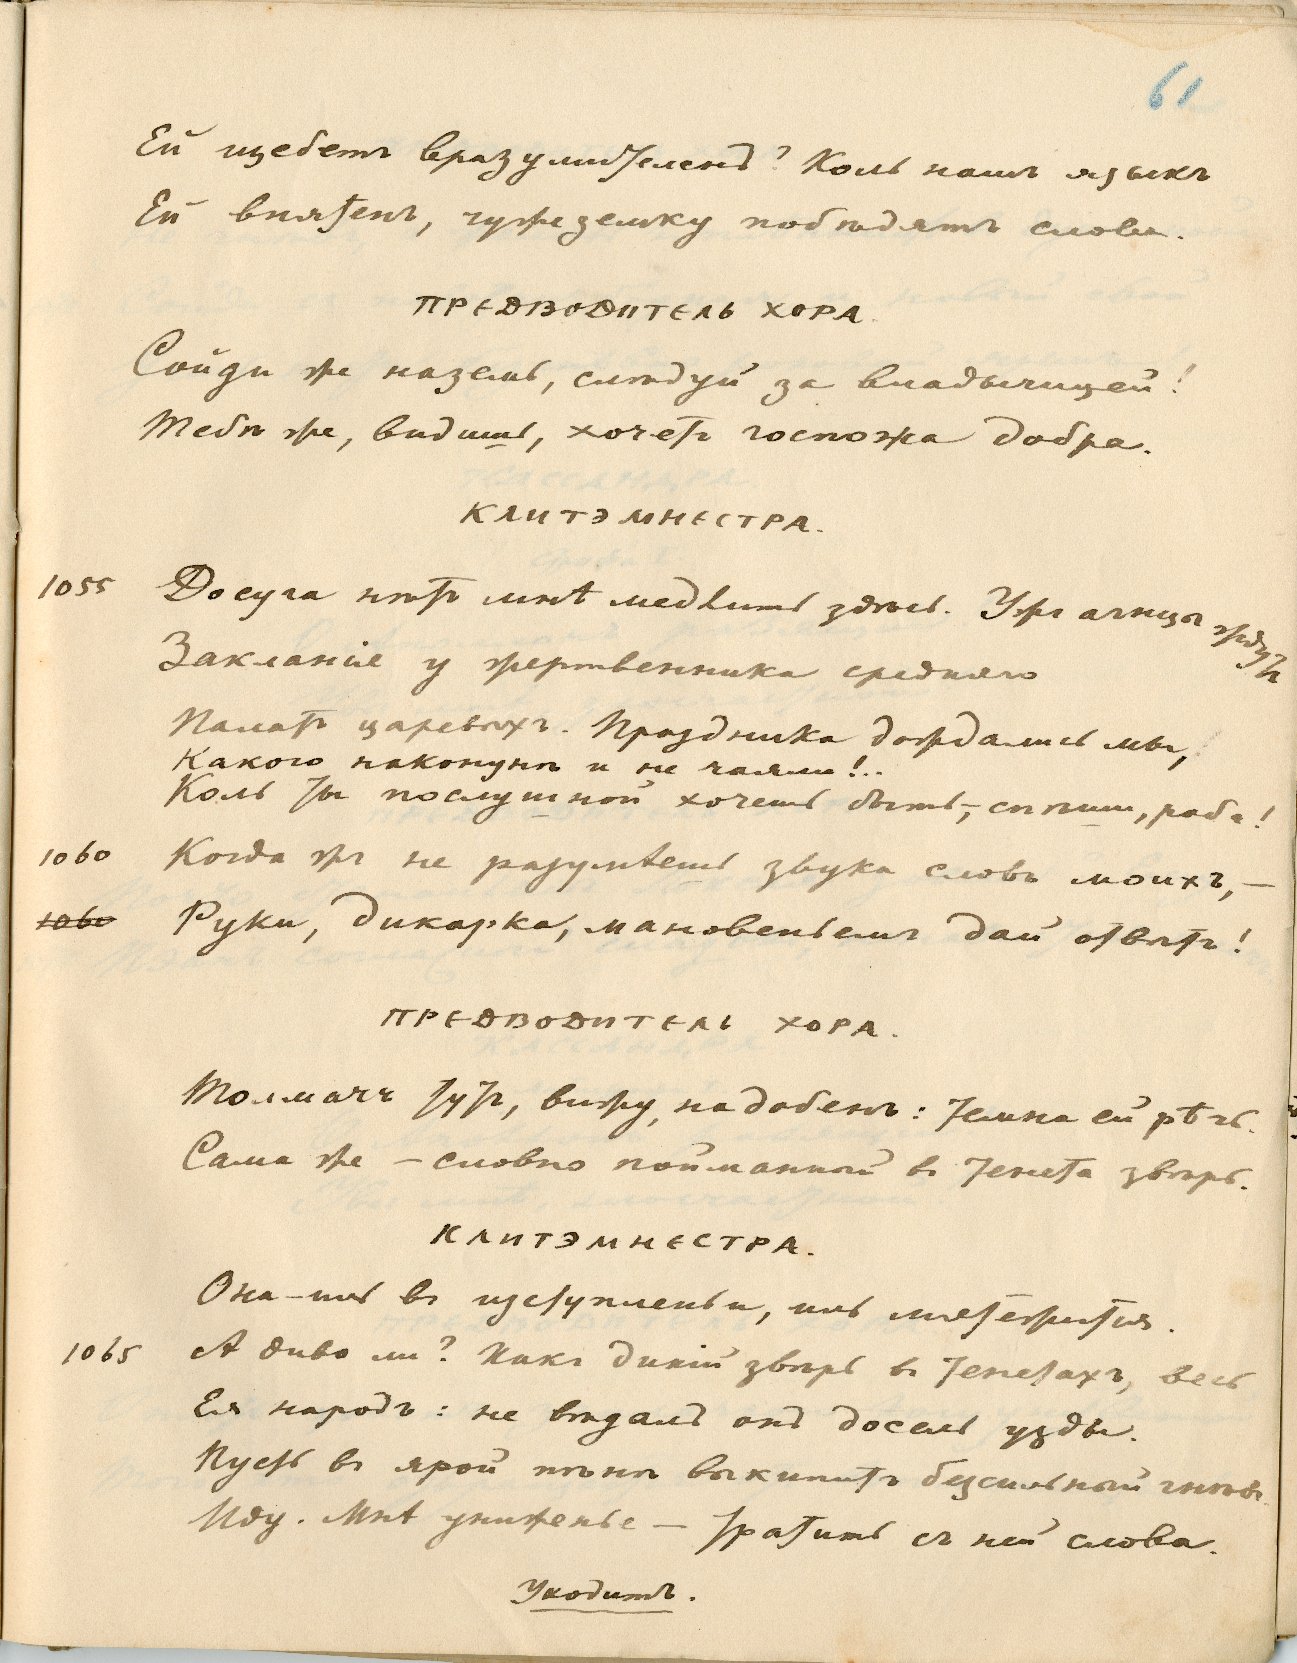 61
Ей щебетъ вразумителенъ? Коль нашъ языкъ
Ей внятенъ, чужеземку побѣдятъ слова.
ПРЕДВОДИТЕЛЬ ХОРА.
Сойди же наземь, слѣдуй за владычицей!
Тебѣ же, видишь, хочетъ госпожа добра.
КЛИТЭМНЕСТРА.
1055 Досуга нѣтъ мнѣ медлить здѣсь. Ужъ агнцы ждутъ
Закланіе у жертвенника средняго
Палатъ царевыхъ. Праздника дождались мы,
Какого наканунѣ и не чаяли!..
Коль ты послушной хочешь быть, – спѣши, раба!
1060 Когда жъ не разумѣешь звука словъ моихъ, –
1060 Руки, дикарка, мановеньемъ дай отвѣтъ!
ПРЕДВОДИТЕЛЬ ХОРА.
Толмачъ тутъ, вижу, надобенъ: темна ей рѣчь.
Сама же – словно пойманный въ тенета звѣрь.
КЛИТЭМНЕСТРА.
Она – иль въ изступленьи, иль мятежится.
1065 А диво ли? Какъ дикій звѣрь въ тенетахъ, весь
Ея народъ: не вѣдалъ онъ доселѣ узды.
Пусть въ ярой пѣнѣ выкипитъ безсильный гнѣвъ.
Иду. Мнѣ униженье – тратить съ ней слова.
Уходитъ.